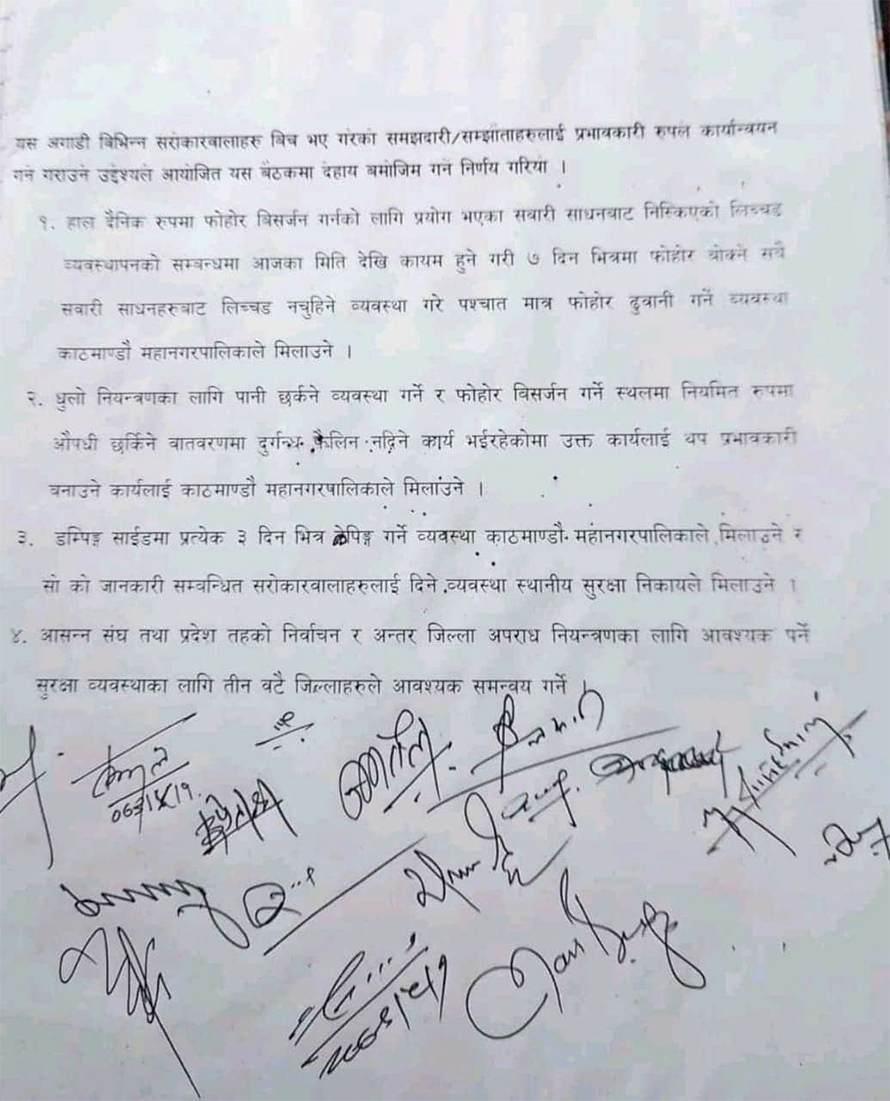 यस अगाडी विभिन्न सरोकारवालाहरु बिच भए गरेका समझदारी/सम्झौताहरुलाई प्रभावकारी रुपले कार्यान्वयन
गर्ने गराउने उद्देश्यले आयोजित यस बैठकमा देहाय बमोजिम गर्ने निर्णय गरियो ।
१. हाल दैनिक रुपमा फोहोर बिसर्जन गर्नको लागि प्रयोग भएका सवारी साधनबाट निस्किएको लिच्चड
व्यवस्थापनको सम्बन्धमा आजका मिति देखि कायम हुने गरी ७ दिन भित्रमा फोहोर बोक्ने सबै
सवारी साधनहरुबाट लिच्चड नचुहिने व्यवस्था गरे पश्चात मात्र फोहोर ढुवानी गर्ने व्यवस्था
काठमाण्डौ महानगरपालिकाले मिलाउने ।
२. धुलो नियन्त्रणका लागि पानी छर्कने व्यवस्था गर्ने र फोहोर बिसर्जन गर्ने स्थलमा नियमित रुपमा
औषधी छर्किने वातवरणमा दुर्गन्ध फैलिन नदिने कार्य भईरहेकोमा उक्त कार्यलाई थप प्रभावकारी
बनाउने कार्यलाई काठमाण्डौ महानगरपालिकाले मिलाउने ।
३. डम्पिङ्ग साईडमा प्रत्येक ३ दिन भित्र केपिङ्ग गर्ने व्यवस्था काठमाण्डौ महानगरपालिकाले मिलाउने र
सो को जानकारी सम्बन्धित सरोकारवालाहरुलाई दिने व्यवस्था स्थानीय सुरक्षा निकायले मिलाउने ।
४. आसन्न संघ तथा प्रदेश तहको निर्वाचन र अन्तर जिल्ला अपराध नियन्त्रणका लागि आवश्यक पर्ने
सुरक्षा व्यवस्थाका लागि तीन वटै जिल्लाहरुले आवश्यक समन्वय गर्ने ।